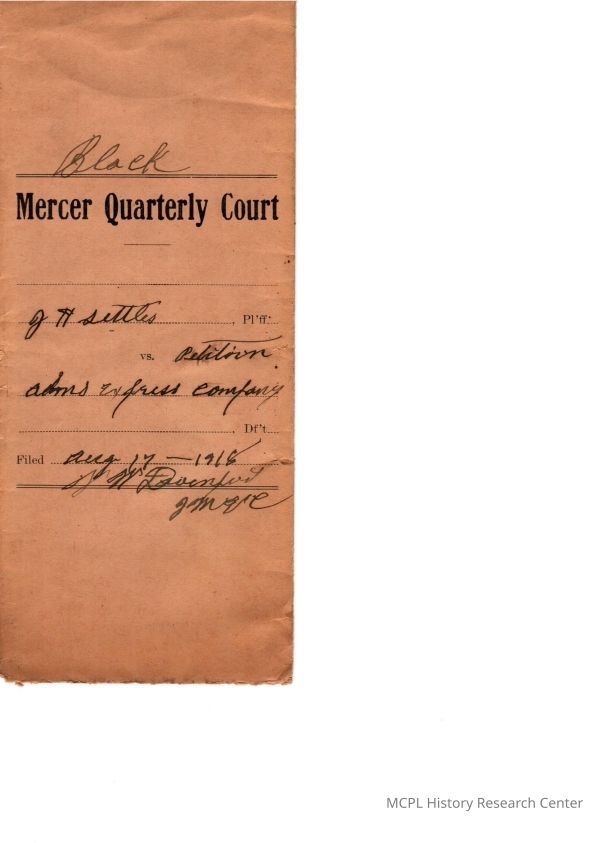 Black
Mercer Quarterly Court
J H Settles, Pl'ff.
vs. Petition
Adms Express Company
Df't.
Filed Aug 17 - 1918
W Davenport
J M Q C
MCPL History Research Center